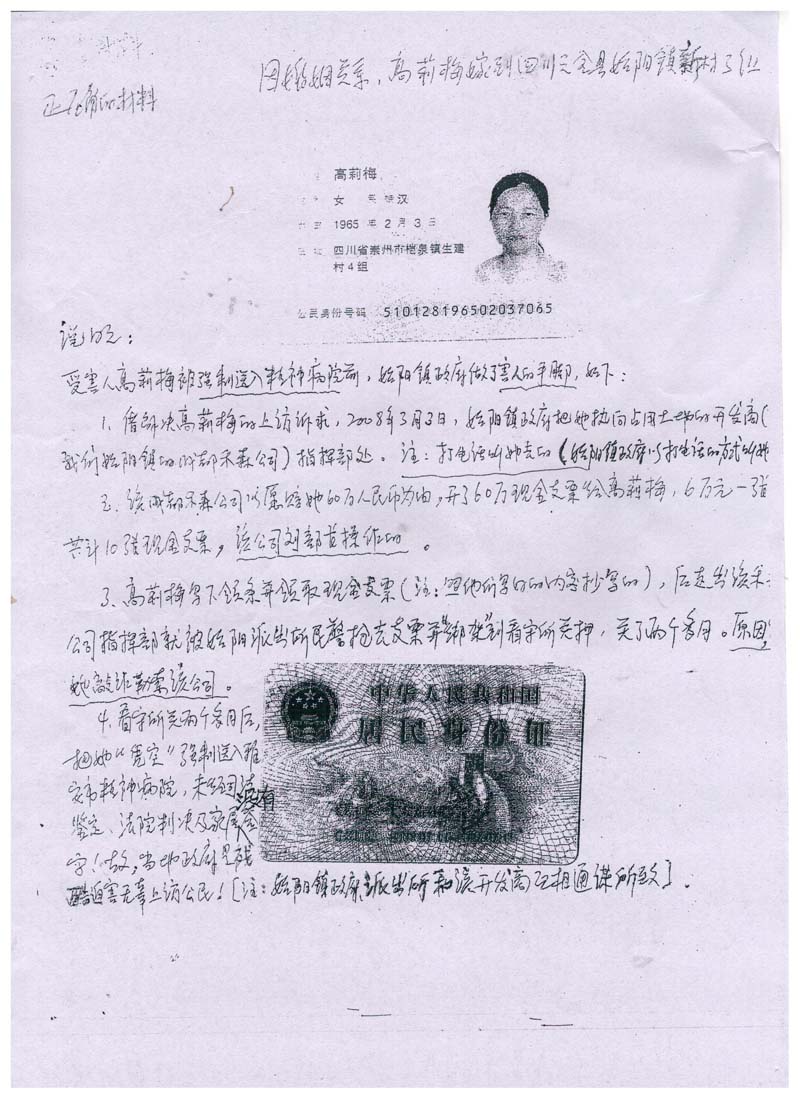 因婚姻关系，高莉梅嫁到四川天全县始阳镇新村3组
正确的材料
高莉梅
女 汉
1965 年 2 月 3 日
四川省崇州市桤泉镇生建
村4组
公民身份号码 510128196502037065
说明：
受害人高莉梅被强制送入精神病院前，始阳镇政府做了害人的手脚，如下：
1. 借解决高莉梅的上访诉求，2008年3月3日，始阳镇政府把她执向占用土地的开发商(
我们始阳镇的成都禾森公司）指挥部处。注：打电话叫她去的（始阳镇政府以打电话的方式叫她
2. 该成都禾森公司以愿赔她60万人民币为由，开了60万现金支票给高莉梅，6万元一张
共计10张现金支票，该公司刘部长操作的。
3. 高莉梅写下领条并领取现金支票（注：照他们写的的内容抄写的），后走出该禾
公司指挥部就被始阳派出所民警抢去支票并“绑架”到看守所关押，关了两个多月。原因，
她敲诈勒索该公司。
4. 看守所关两个多月后，
把她“凭空”强制送入雅
安市精神病院，未经司法
鉴定、法院判决及家属没有签
字！故，当地政府是残
酷迫害无辜上访公民！[注：始阳镇政府、派出所和该开发商互相通谋所致]．
中华人民共和国
居民身份证